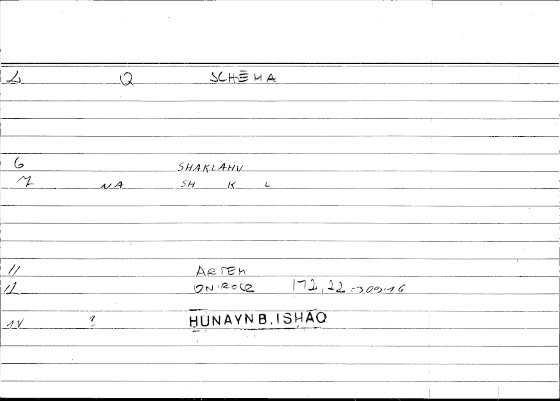 2 Q SCHĒMA
6 SHAKLAHU
7 NA SH K L
11 ARTEM
12 ONIROCR 172,22=309.16
14 ? HUNAYN B. ISHAQ